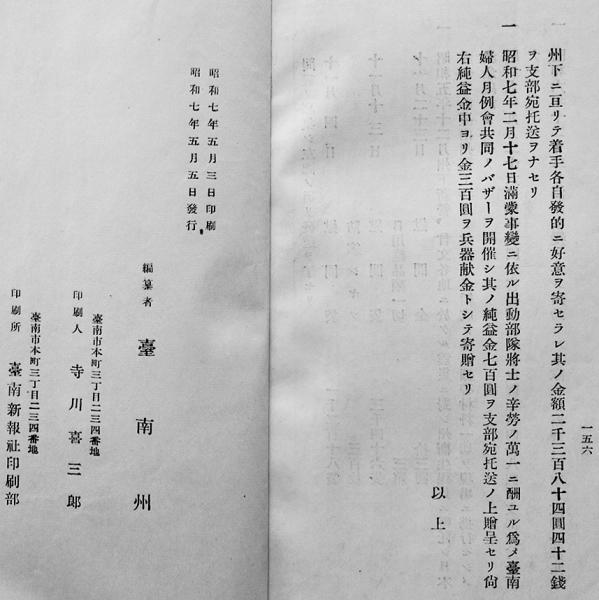 一五六
州下ニ亘リテ着手各自發的ニ好意ヲ寄セラレ其ノ金額二千三百八十四圓四十二錢
ヲ支部宛托送ヲナセリ
一 昭和七年二月十七日滿蒙事變ニ依ル出動部隊將士ノ辛勞ノ萬一ニ酬ユル爲メ臺南
婦人月例會共同ノバザーヲ開催シ其ノ純益金七百圓ヲ支部宛托送ノ上贈呈セリ尙
右純益金中ヨリ金三百圓ヲ兵器献金トシテ寄贈セリ
以上
昭和七年五月三日印刷
昭和七年五月五日發行
編纂者 臺南州
臺南市本町三丁目二三四番地
印刷人 寺川喜三郎
臺南市本町三丁目二三四番地
印刷所 臺南新報社印刷部